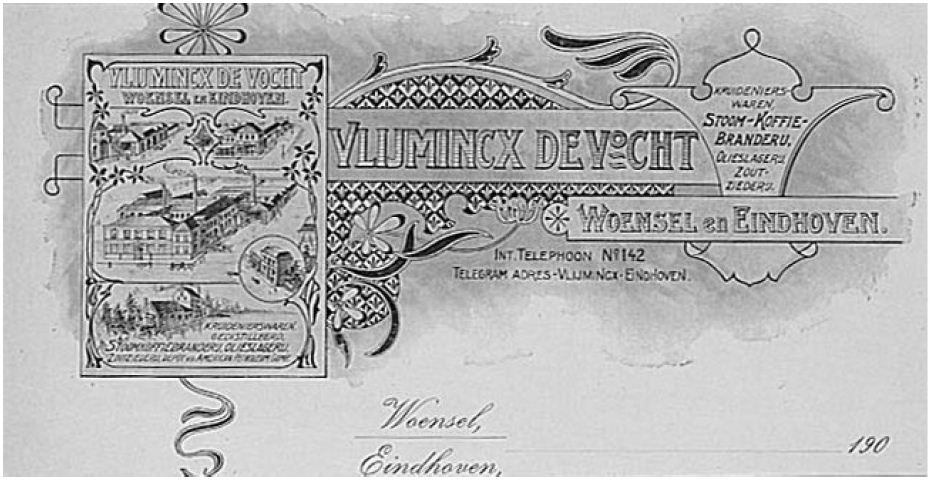 VLIJMINCX DE VOCHT
WOENSEL EN EINDHOVEN.
KRUIDENIERSWAREN,
STOOMKOFFIEBRANDERIJ, OLIESLAGERIJ,
ZOUTZIEDERIJ, DEPOT
AMERICAN PETROLEUM
VLIJMINCX DE VOCHT
KRUIDENIERS-
WAREN,
STOOM-KOFFIE-
BRANDERIJ,
OLIESLAGERIJ
ZOUT-
ZIEDERIJ.
WOENSEL en EINDHOVEN.
INT. TELEPHOON No 142
TELEGRAM ADRES-VLIJMINCX-EINDHOVEN.
Woensel,
190
Eindhoven,